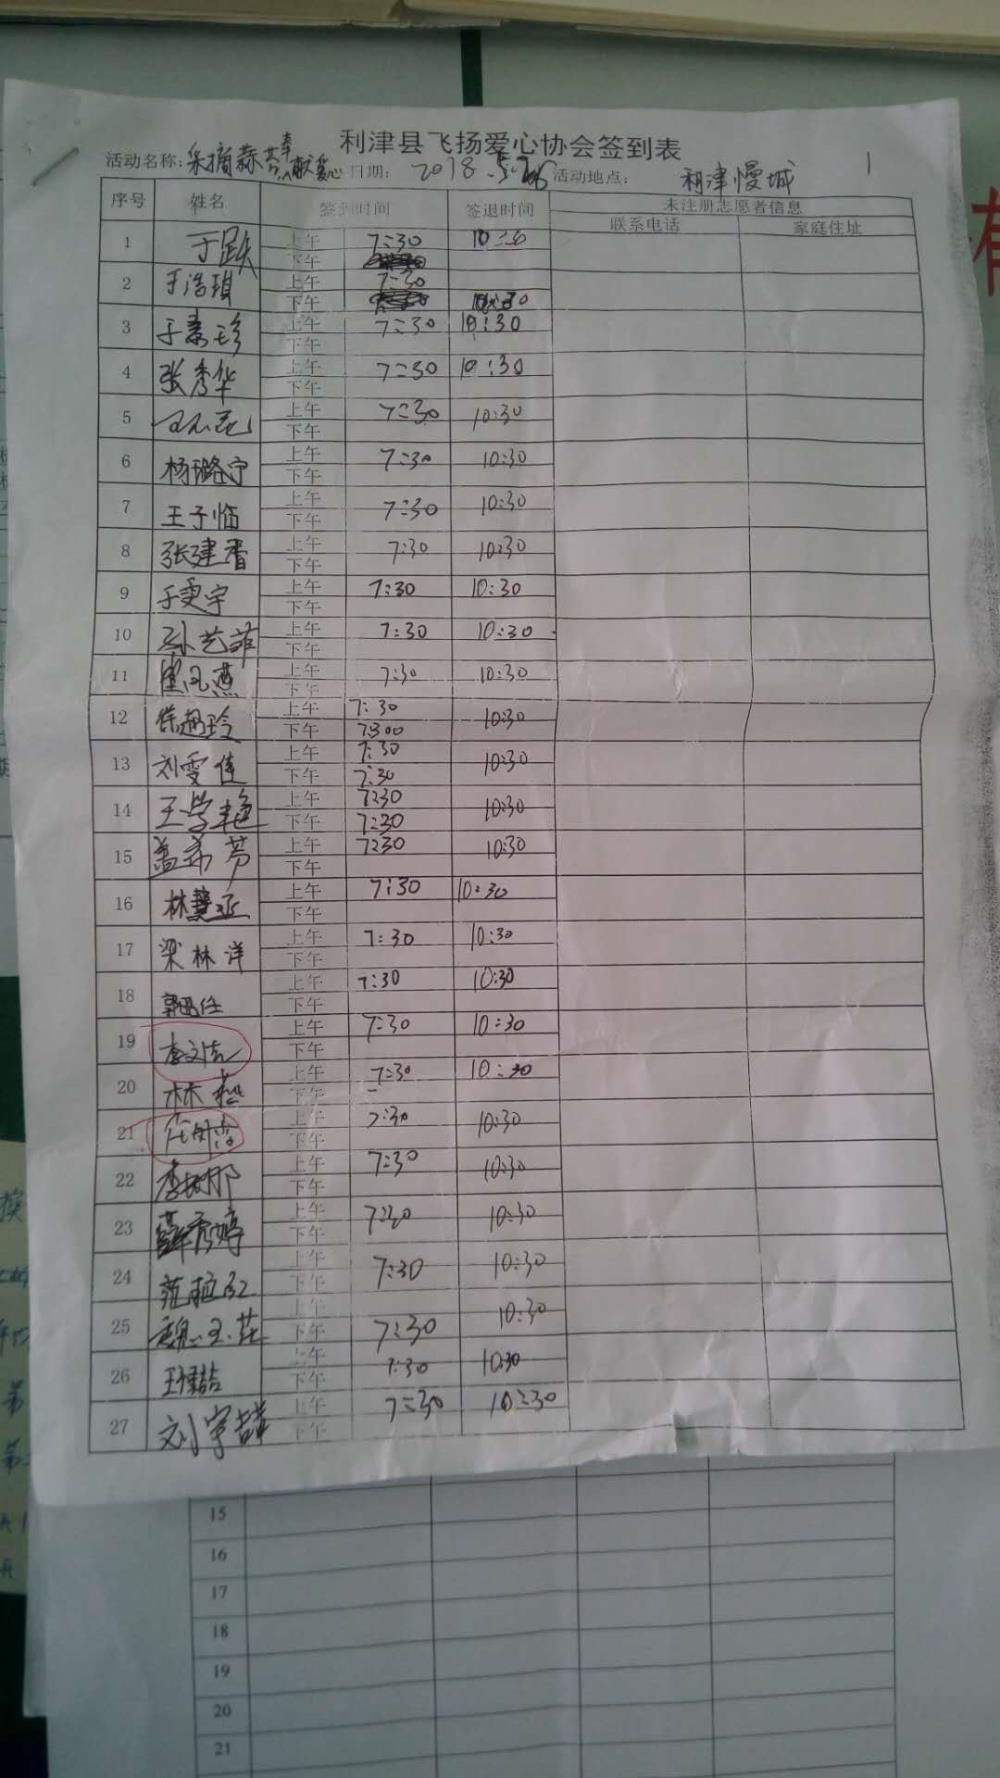 利津县飞扬爱心协会签到表
活动名称:采摘蒜苔 奉献爱心 日期: 2018.5. 活动地点: 利津慢城 1
序号 姓名 签到时间 签退时间 未注册志愿者信息
联系电话 家庭住址
1 于跃 上午 7:30
下午
2 于浩琪 上午 7:30
下午
3 于素珍 上午 7:30 10:30
下午
4 张秀华 上午 7:30 10:30
下午
5 上午 7:30 10:30
下午
6 杨璐宁 上午 7:30 10:30
下午
7 王子临 上午 7:30 10:30
下午
8 张建香 上午 7:30 10:30
下午
9 于雯宇 上午 7:30 10:30
下午
10 孙艺菲 上午 7:30 10:30
下午
11 崔凤燕 上午 7:30 10:30
下午
12 上午 7:30 10:30
下午
13 刘雯佳 上午 7:30 10:30
下午 7:30
14 王学艳 上午 7:30 10:30
下午 7:30
15 盖希芳 上午 7:30 10:30
下午
16 林慧亚 上午 7:30 10:30
下午
17 梁林洋 上午 7:30 10:30
下午
18 上午 7:30 10:30
下午
19 李文 上午 7:30 10:30
下午
20 林 上午 7:30 10:30
下午
21 上午 7:30 10:30
下午
22 李娜 上午 7:30 10:30
下午
23 薛秀婷 上午 7:30 10:30
下午
24 范 上午 7:30 10:30
下午
25 魏玉花 上午 10:30
下午 7:30
26 上午 7:30 10:30
下午
27 刘宇喆 上午 7:30 10:30
下午
15
16
17
18
19
20
21